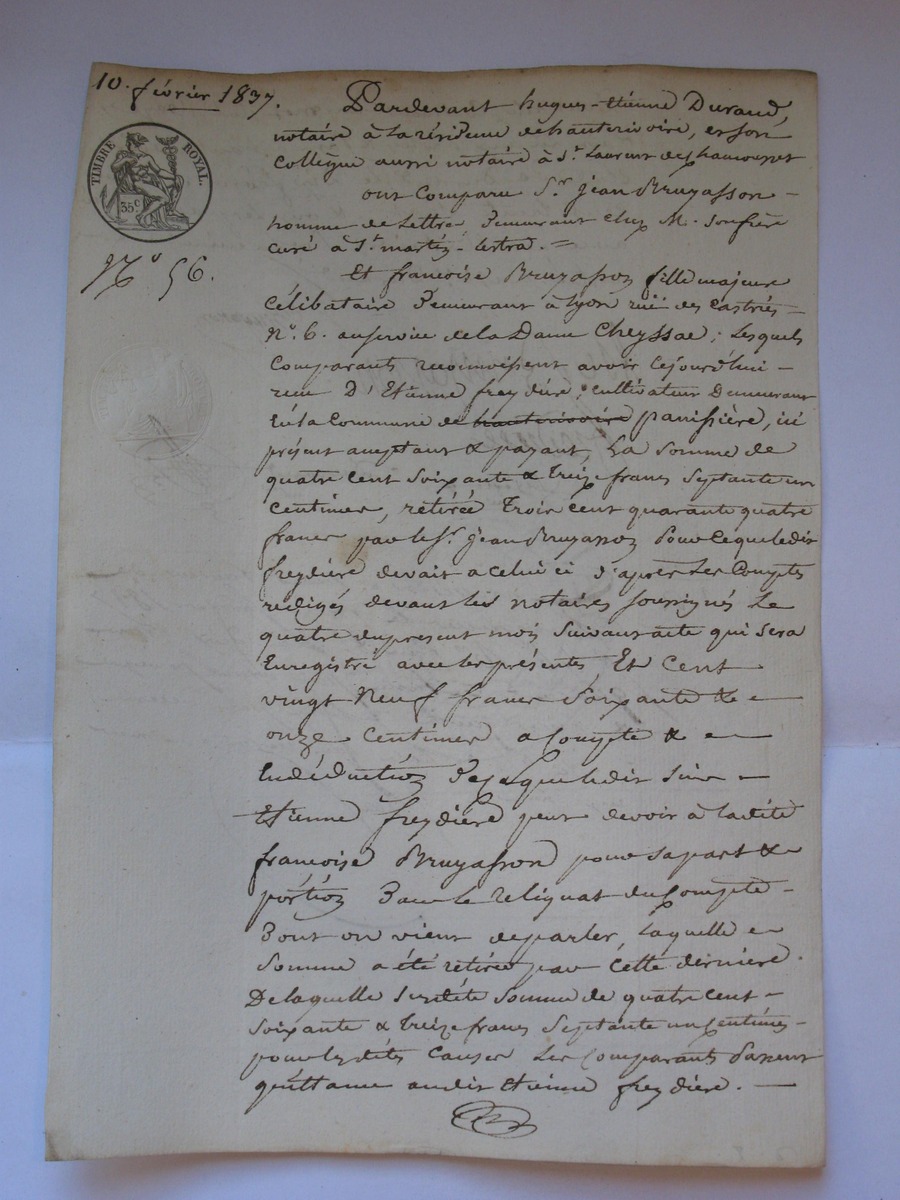 10. février 1837.
TIMBRE ROYAL.
35c
No 56.
Pardevant hugues-Etienne Durand,
notaire à la résidence de hauterivoire, et son
collègue aussi notaire à St Laurent de chamousset
ont Comparu Sr jean Bruyasson
homme de Lettre, Demeurant chez M. son frère
curé à St martin Lestra. =
Et francoise Bruyasson fille majeure
Célibataire Demeurant à Lyon rue des Castries
No 6. au service de la Dame Cheyssac; Lesquels
Comparants reconnoissent avoir Cejourd'hui
recu D'Etienne freydière, cultivateur Demeurant
En la Commune de hauterivoire panissière, ici
présent acceptant & payant, La somme de
quatre cent soixante & treize francs septante un
Centimes, retirée Trois cent quarante quatre
francs par le Sr jean Bruyasson pour ce que le dit
freydière devait a celui ci d'après Les Comptes
redigés devant les notaires soussignés Le
quatre du present mois suivant acte qui sera
Enregistré avec les présentes Et Cent
vingt Neuf francs soixante &
onze Centimes a Compte &
En déduction De ce que ledit sieur
Etienne freydière peut devoir à ladite
francoise Bruyasson pour sa part &
portion Dans Le reliquat du Compte
Dont on vient de parler, Laquelle
somme a été retirée par Cette dernière.
De laquelle susdite somme de quatre cent
soixante & treize francs Septante un Centimes
pour lesdites Causes Les Comparants passent
quittance audit Etienne freydière.